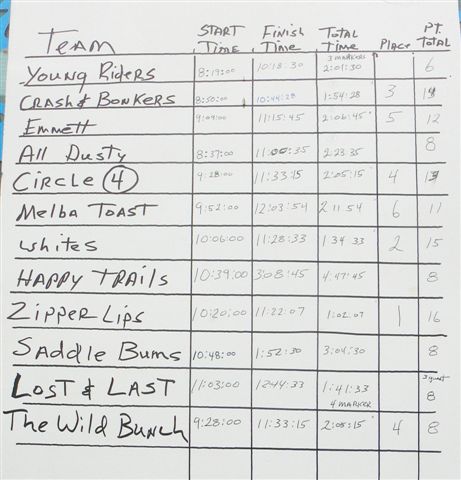 TEAM START TIME FINISH TIME TOTAL TIME PLACE PT. TOTAL
YOUNG RIDERS 8:19:00 10:18:30 3 MARKERS 2:01:30 6
CRASH & BONKERS 8:50:00 10:44:28 1:54:28 3
EMMETT 9:09:00 11:15:45 2:06:45 5 12
ALL DUSTY 8:37:00 11:00:35 2:23:35 8
CIRCLE 4 9:28:00 11:33:15 2:05:15 4
MELBA TOAST 9:52:00 12:03:54 2 11 54 6 11
WHITES 10:06:00 11:28:33 1 34 33 2 15
HAPPY TRAILS 10:39:00 3:08:45 4:47:45 8
ZIPPER LIPS 10:20:00 11:22:07 1:02:07 1 16
SADDLE BUMS 10:48:00 1:52:30 3:04:30 8
LOST & LAST 11:03:00 12:44:33 1:41:33 4 MARKER 8
THE WILD BUNCH 9:28:00 11:33:15 2:05:15 4 8